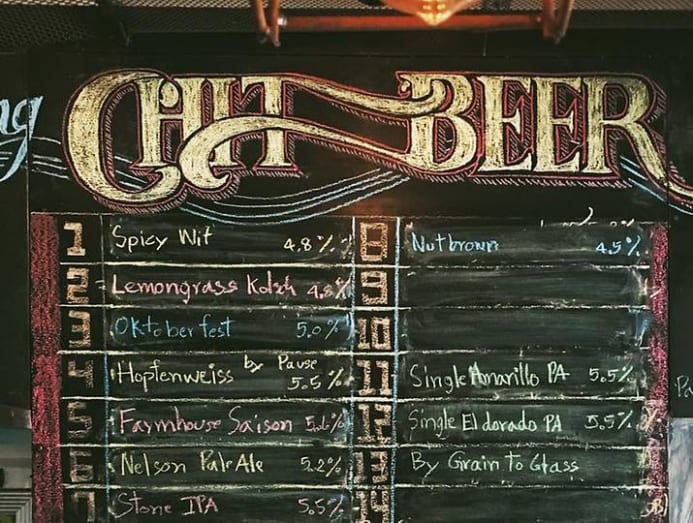 ng
CHIT BEER
1 Spicy Wit 4.8%
2 Lemongrass Kolsh 4.8%
3 Oktoberfest 5.0%
4 Hopfenweiss by Pause 5.5%
5 Farmhouse Saison
6 Nelson Pale Ale 5.2%
7 Stone IPA 5.5%
8 Nutbrown 4.5%
9
10
11 Single Amarillo PA 5.5%
12 Single El dorado PA 5.5%
13 By Grain To Glass
14